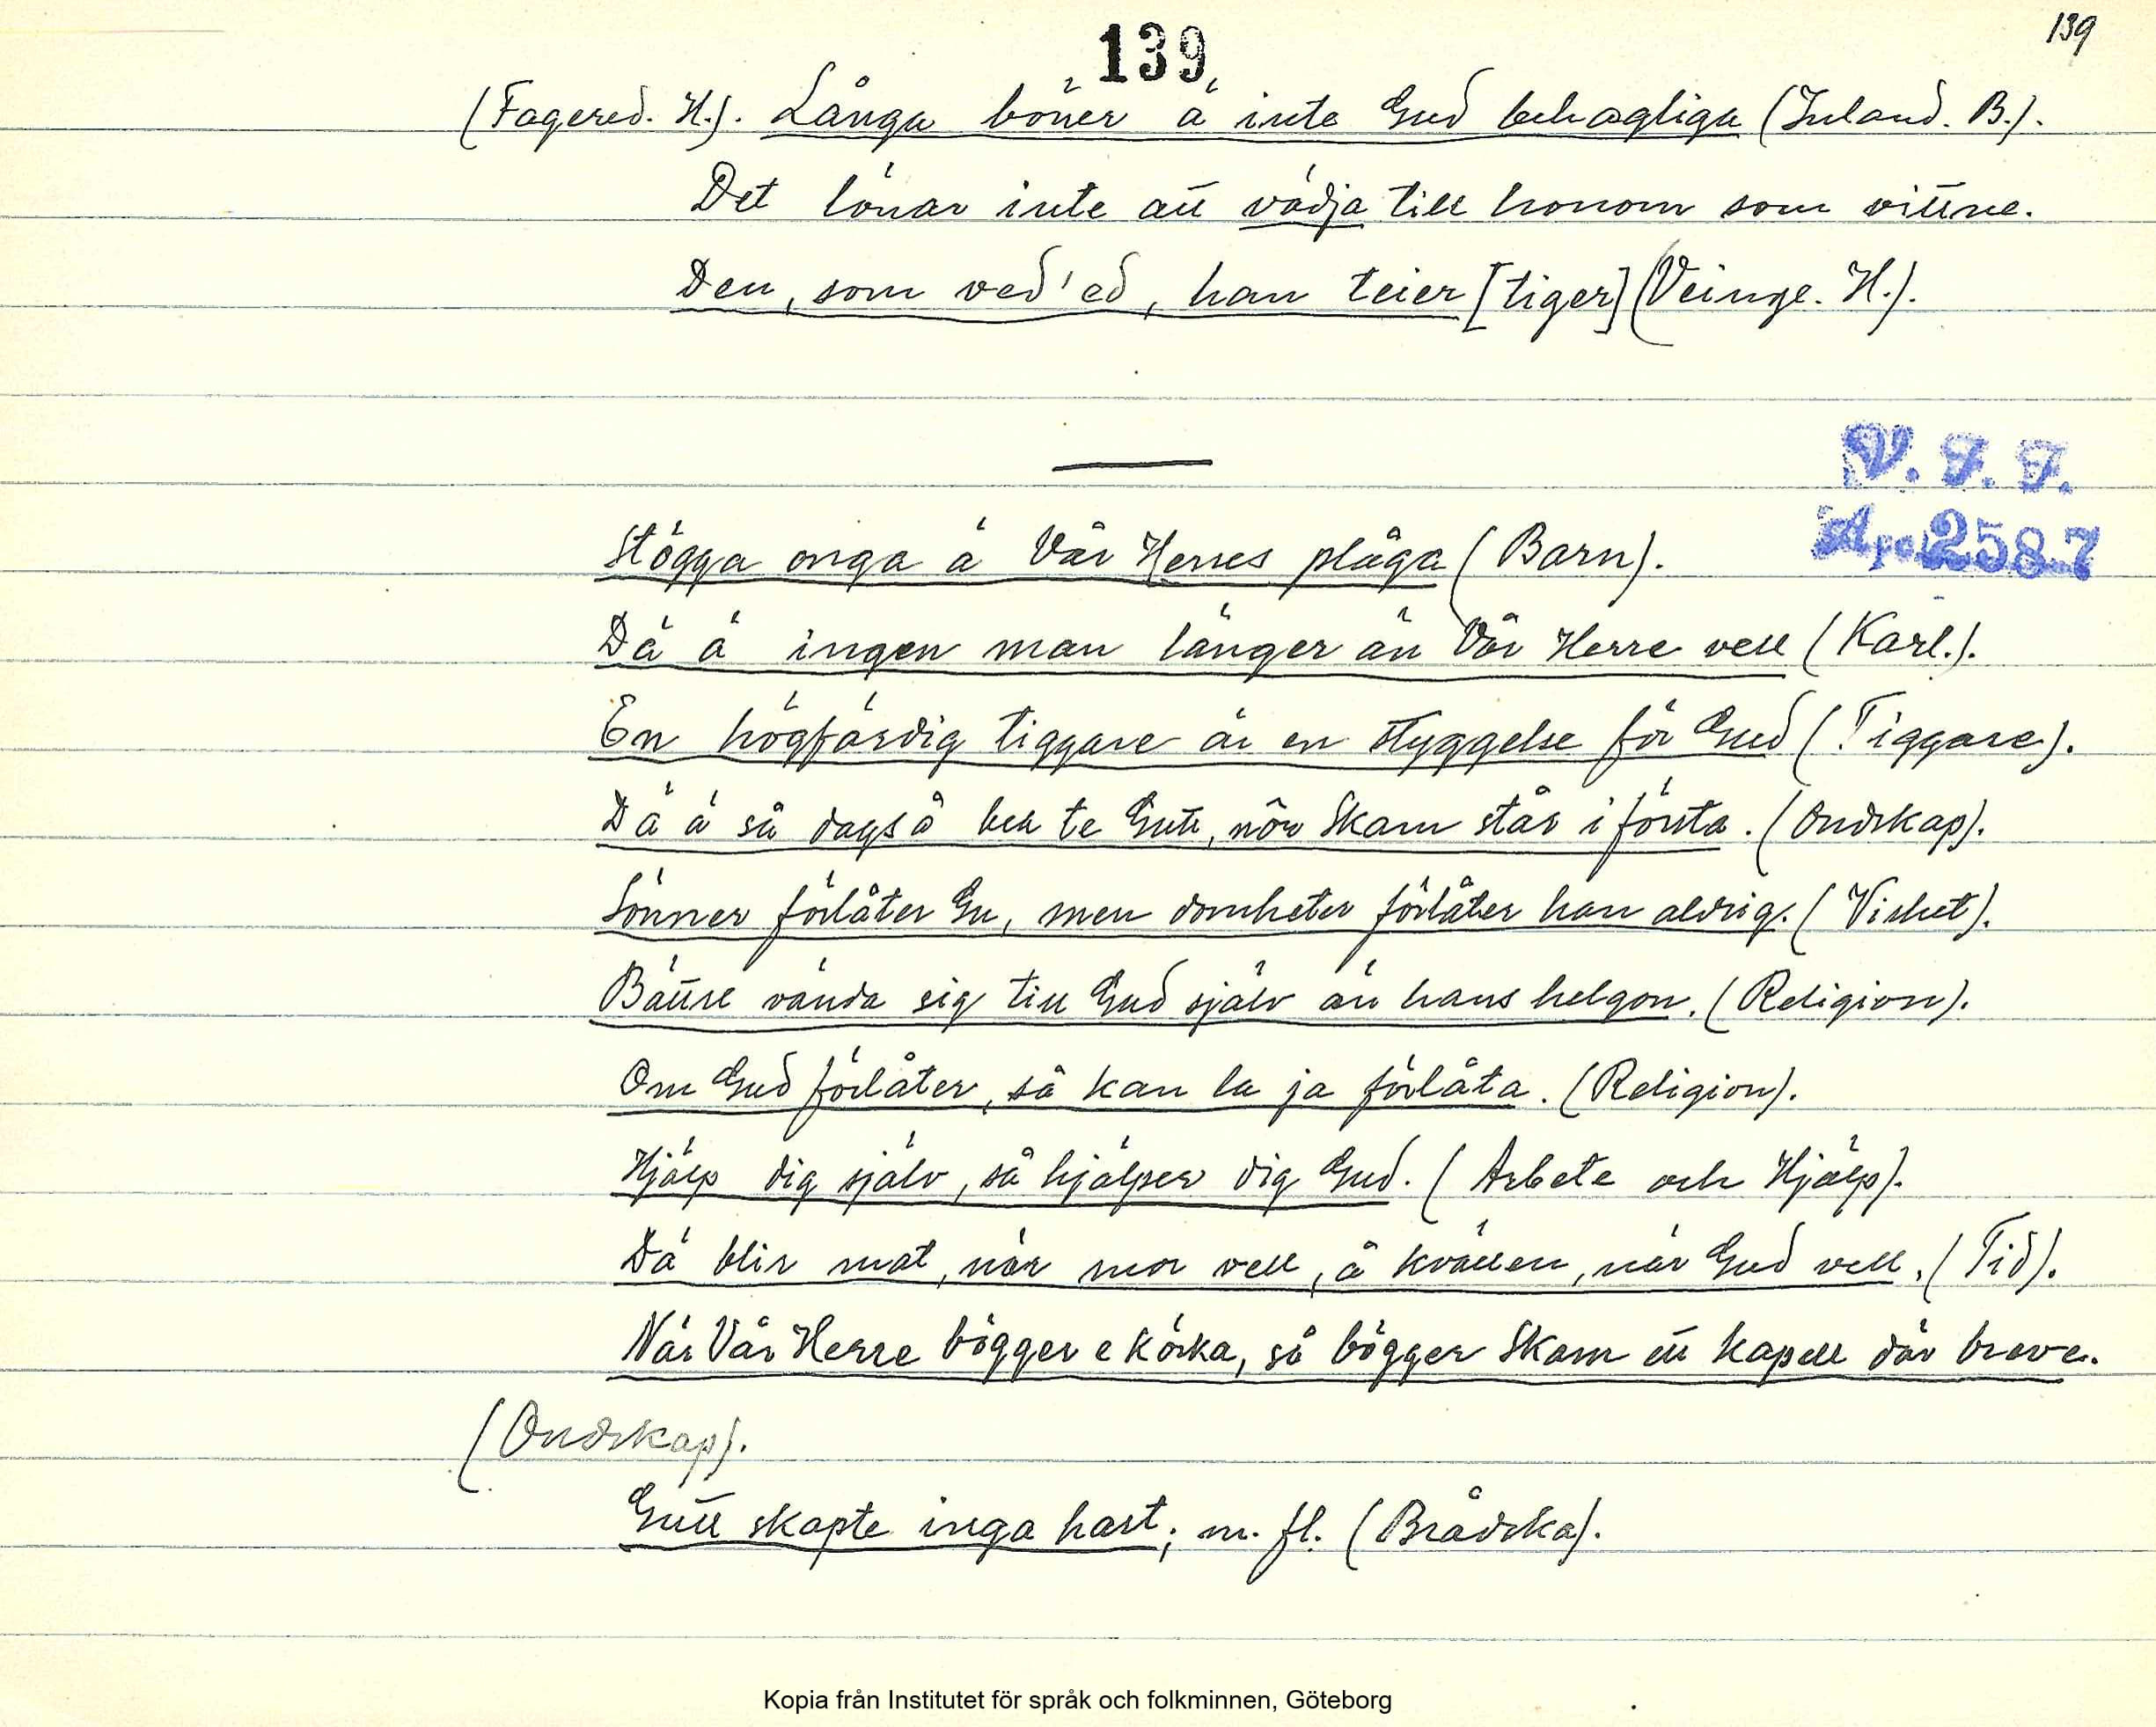 139
139
(Fagered. H.). Långa böner ä inte Gud behagliga (Inland. B.).
Det lönar inte att vädja till honom som vittne.
Den, som ved' ed, han teier [tiger] (Veinge. H.).
V. F. F.
2587
Stögga onga ä Vår Herres plåga (Barn).
Dä ä ingen man länger än Vår Herre vell (Karl.).
En högfärdig tiggare är en styggelse för Gud (Tiggare).
Dä ä så dags å be te Gutt, nôr Skam står i första. (Ondskap).
Sönner förlåter Gu, men domheter förlåter han aldrig. (Vishet).
Bättre vända sig till Gud själv än hans helgon. (Religion).
Om Gud förlåter, så kan la ja förlåta. (Religion).
Hjälp dig själv, så hjälper dig Gud. (Arbete och Hjälp).
Dä blir mat, när mor vell, å kvällen, när Gud vell. (Tid).
När Vår Herre bögger e körka, så bögger Skam ett kapell där breve.
(Ondskap).
Gutt skapte inga hast; m. fl. (Brådska).
Kopia från Institutet för språk och folkminnen, Göteborg